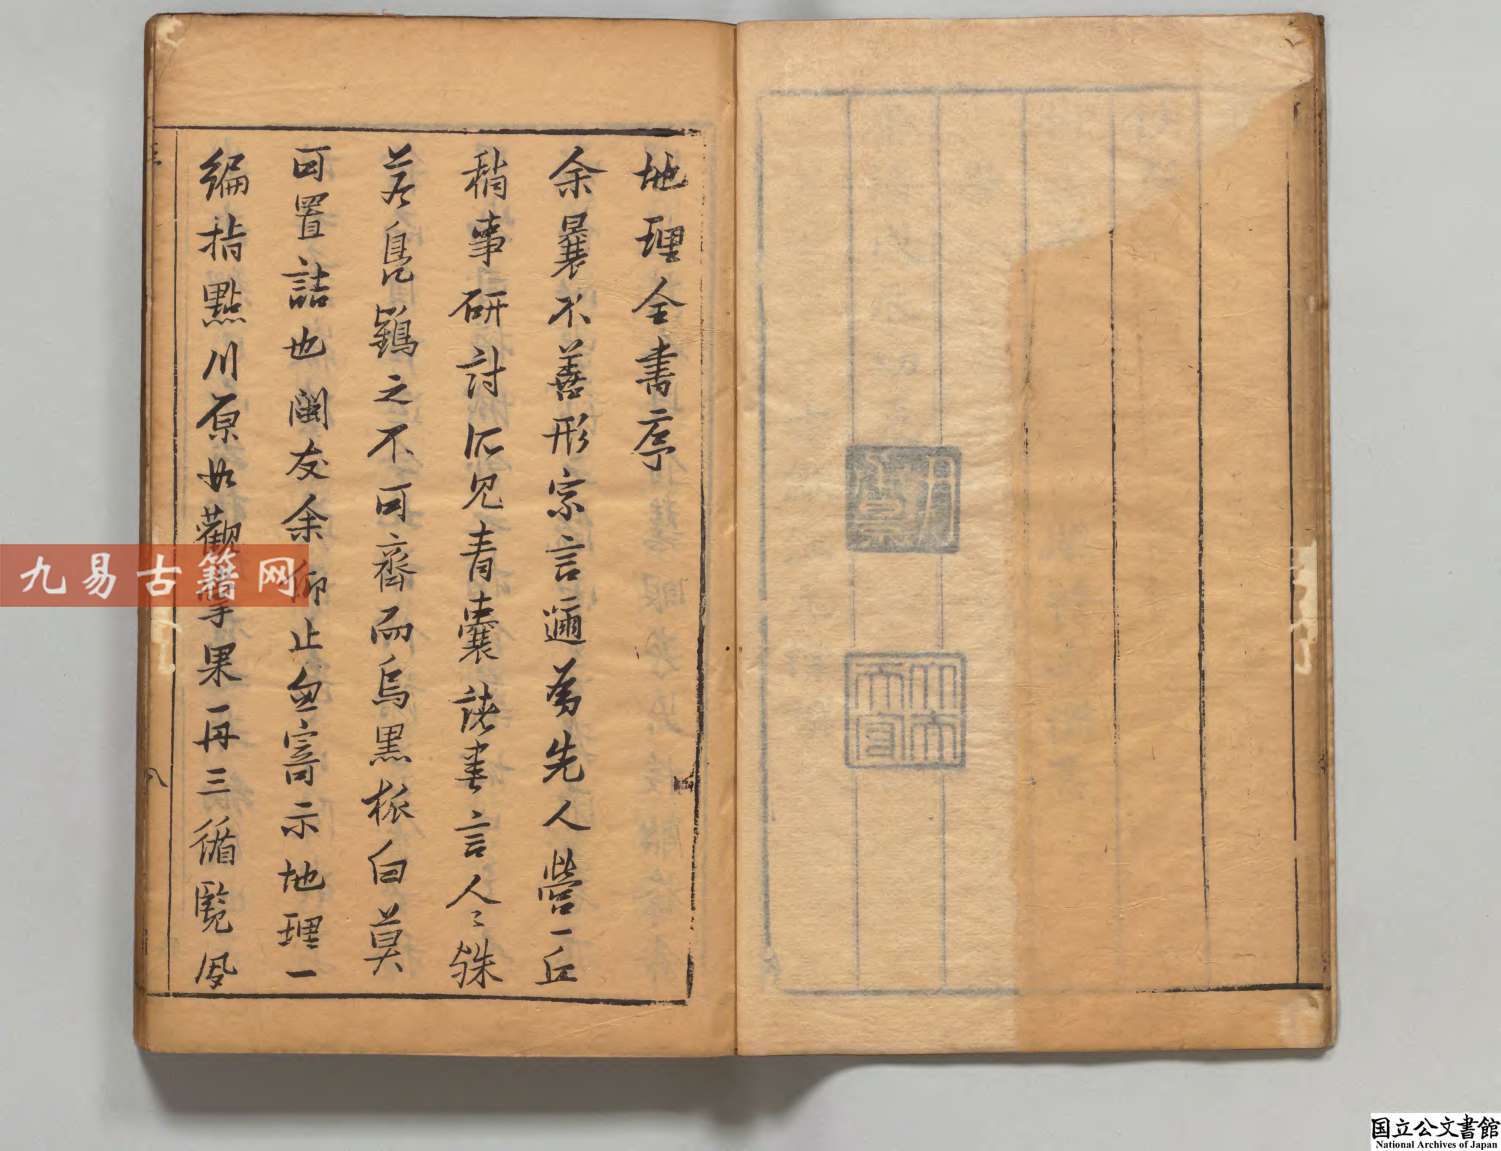 地理全書序
余曩不善形宗言邇爲先人營一丘
稍事研討所見青囊諸書言人〻殊
若鳧鶴之不可齊而烏黑
白莫
可置詰也閩友余仰止無寄示地理一
編指點川原如觀掌果再三循覽風
九易古籍网
国立公文書館
National Archives of Japan